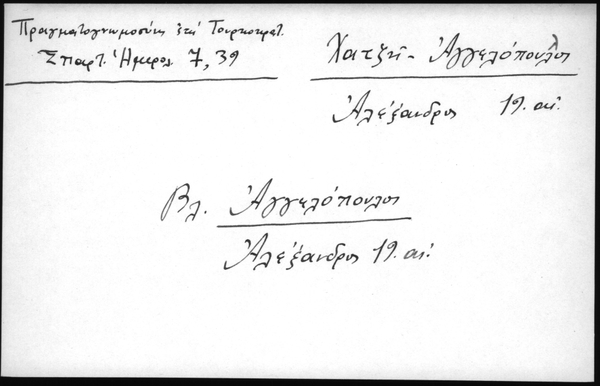 Πραγματογνωμοσύνη ἐπί Τουρκοκρατ.
Σπαρτ. Ἡμερολ. 7, 39
Χατζῆ - Ἀγγελόπουλος
Ἀλέξανδρος 19. αἰ.
Βλ. Ἀγγελόπουλος
Ἀλέξανδρος 19. αἰ.